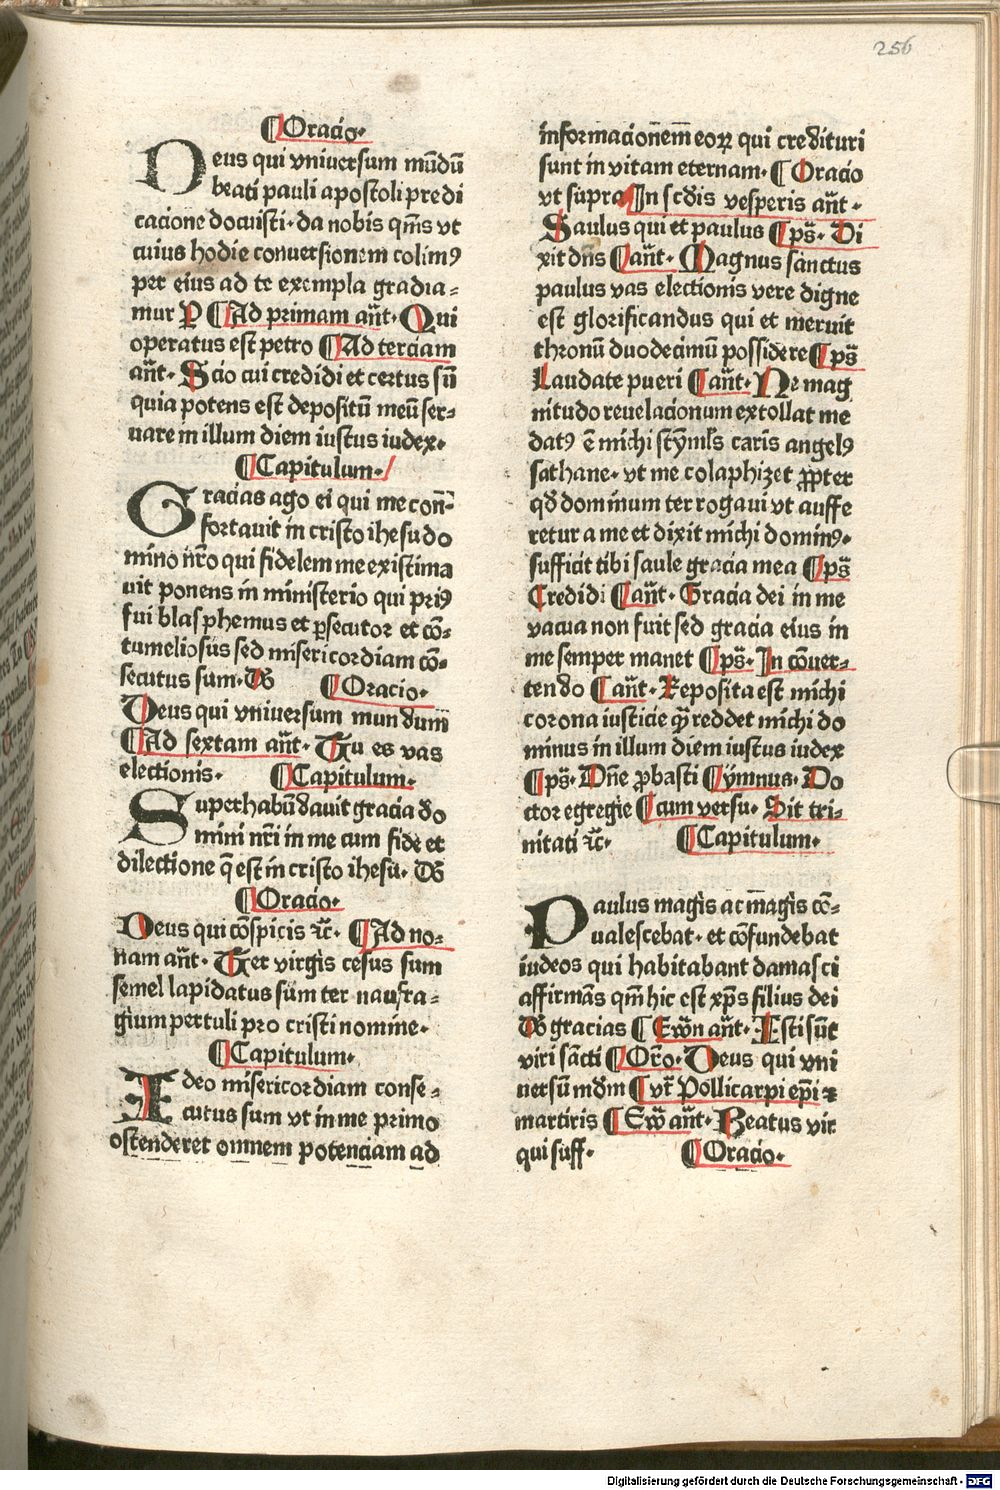 256
¶Oracio.
Deus qui vniuersum mūdū
beati pauli apostoli predi
cacione docuisti. da nobis qm̄s vt
cuius hodie conuersionem colim9
per eius ad te exempla gradia⸗
mur P̲ ¶Ad primam añt. Qui
operatus est petro ¶Ad terciam
añt. Scio cui credidi et certus sū
quia potens est depositū meū ser⸗
uare in illum diem iustus iudex.
¶Capitulum.
Gracias ago ei qui me con̄⸗
fortauit in cristo ihesu do
mino nr̄o qui fidelem me existima
uit ponens in ministerio qui pri9
fui blasphemus et ꝑsecutor et cō⸗
tumeliosus sed misericordiam cō⸗
secutus sum. D̄G ¶Oracio.
Deus qui vniuersum mundum
¶Ad sextam añt. Tu es vas
electionis. ¶Capitulum.
Superhabūdauit gracia do
mini nr̄i in me cum fide et
dilectione q̄ est in cristo ihesu. DG
¶Oracio.
Deus qui cōspicis ꝛc̄. ¶Ad no⸗
nam añt. Ter virgis cesus sum
semel lapidatus sum ter naufra⸗
gium pertuli pro cristi nomine.
¶Capitulum.
Ideo misericordiam conse⸗
cutus sum vt in me primo
ostenderet omnem potenciam ad
informacionem eoꝝ qui credituri
sunt in vitam eternam. ¶Oracio
vt supra ¶In scd̄is vesperis añt.
Saulus qui et paulus ¶ps̄. Di
xit dn̄s ¶añt. Magnus sanctus
paulus vas electionis vere digne
est glorificandus qui et meruit
thronū duodecimū possidere ¶ps̄
Laudate pueri ¶añt. Ne mag
nitudo reuelacionum extollat me
dat9 ē michi stym̄ls carīs angel9
sathane. vt me colaphizet ꝓpter
qd̄ dominum ter rogaui vt auffe
retur a me et dixit michi domin9.
sufficit tibi saule gracia mea ¶ps̄
Credidi ¶añt. Gracia dei in me
vacua non fuit sed gracia eius in
me semper manet ¶ps̄. In cōuer⸗
tendo ¶añt. Reposita est michi
corona iusticie quā reddet michi do
minus in illum diem iustus iudex
¶ps̄. Dn̄e ꝓbasti ¶ymnus. Do
ctor egregie ¶cum versu. Sit tri⸗
nitati ꝛc̄. ¶Capitulum.
Paulus magis ac magis cō⸗
ualescebat. et cōfundebat
iudeos qui habitabant damasci
affirmās qm̄ hic est xp̄s filius dei
DG gracias ¶Ewn̄ añt. Isti sūt
viri sācti ¶Or̄o. Deus qui vni
uersū md̄m ¶vr̄ Pollicarpi ep̄i ⁊
martiris ¶Ew̄ añt. Beatus vir
qui suff. ¶Oracio.
Digitalisierung gefördert durch die Deutsche Forschungsgemeinschaft - DFG